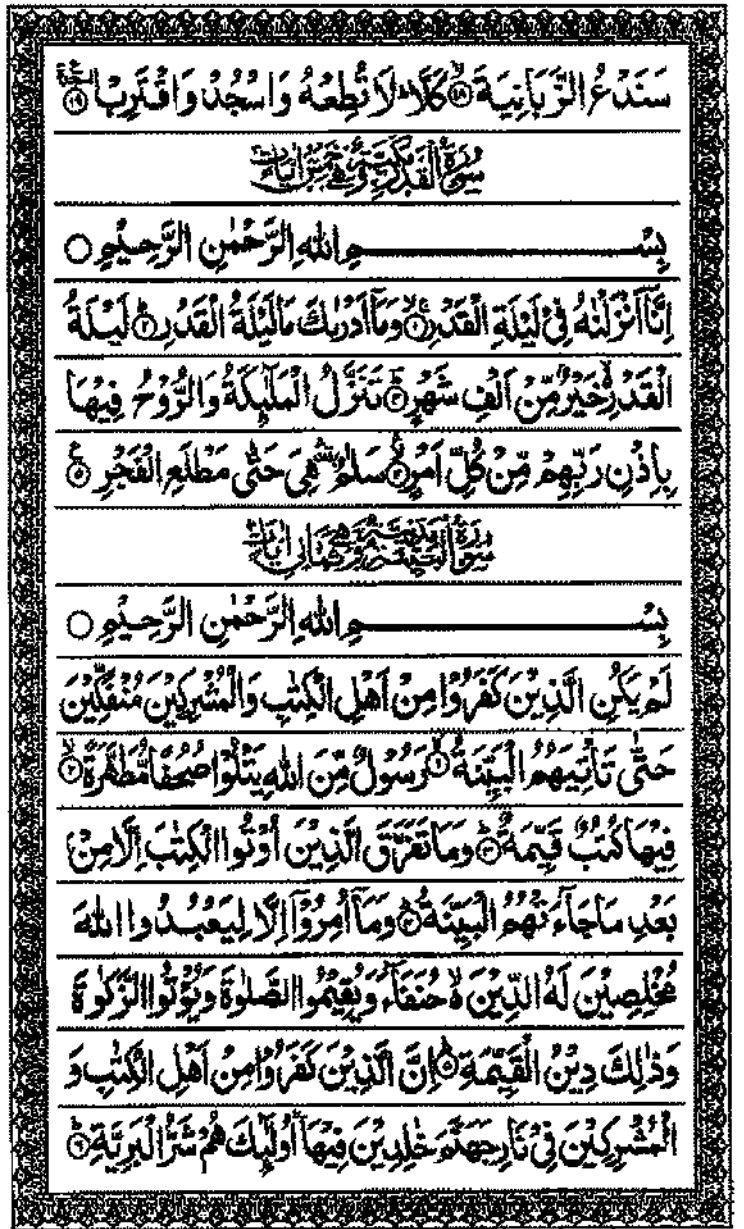 سَنَدْعُ الزَّبَانِيَةَ ۙ﴿۱۸﴾ كَلَّا ؕ لَا تُطِعْهُ وَاسْجُدْ وَاقْتَرِبْ ﴿۱۹﴾ السجدة
سُوْرَةُ الْقَدْرِ مَكِّيَّةٌ وَّهِيَ خَمْسُ اٰيَاتٍ
بِسْمِ اللّٰهِ الرَّحْمٰنِ الرَّحِيْمِ ○
اِنَّاۤ اَنْزَلْنٰهُ فِيْ لَيْلَةِ الْقَدْرِ ۚۖ﴿۱﴾ وَمَاۤ اَدْرٰىكَ مَا لَيْلَةُ الْقَدْرِ ؕ﴿۲﴾ لَيْلَةُ
الْقَدْرِ ۙ۬ خَيْرٌ مِّنْ اَلْفِ شَهْرٍ ؕ﴿۳﴾ تَنَزَّلُ الْمَلٰٓئِكَةُ وَالرُّوْحُ فِيْهَا
بِاِذْنِ رَبِّهِمْ مِّنْ كُلِّ اَمْرٍ ۙۛ﴿۴﴾ سَلٰمٌ ۛ۟ هِيَ حَتّٰى مَطْلَعِ الْفَجْرِ ﴿۵﴾ ع
سُوْرَةُ الْبَيِّنَةِ مَدَنِيَّةٌ وَّهِيَ ثَمَانِيْ اٰيَاتٍ
بِسْمِ اللّٰهِ الرَّحْمٰنِ الرَّحِيْمِ ○
لَمْ يَكُنِ الَّذِيْنَ كَفَرُوْا مِنْ اَهْلِ الْكِتٰبِ وَالْمُشْرِكِيْنَ مُنْفَكِّيْنَ
حَتّٰى تَاْتِيَهُمُ الْبَيِّنَةُ ۙ﴿۱﴾ رَسُوْلٌ مِّنَ اللّٰهِ يَتْلُوْا صُحُفًا مُّطَهَّرَةً ۙ﴿۲﴾
فِيْهَا كُتُبٌ قَيِّمَةٌ ؕ﴿۳﴾ وَمَا تَفَرَّقَ الَّذِيْنَ اُوْتُوا الْكِتٰبَ اِلَّا مِنْۢ
بَعْدِ مَا جَآءَتْهُمُ الْبَيِّنَةُ ؕ﴿۴﴾ وَمَاۤ اُمِرُوْۤا اِلَّا لِيَعْبُدُوا اللّٰهَ
مُخْلِصِيْنَ لَهُ الدِّيْنَ ۙ۬ حُنَفَآءَ وَيُقِيْمُوا الصَّلٰوةَ وَيُؤْتُوا الزَّكٰوةَ
وَذٰلِكَ دِيْنُ الْقَيِّمَةِ ؕ﴿۵﴾ اِنَّ الَّذِيْنَ كَفَرُوْا مِنْ اَهْلِ الْكِتٰبِ وَ
الْمُشْرِكِيْنَ فِيْ نَارِ جَهَنَّمَ خٰلِدِيْنَ فِيْهَا ؕ اُولٰٓئِكَ هُمْ شَرُّ الْبَرِيَّةِ ؕ﴿۶﴾